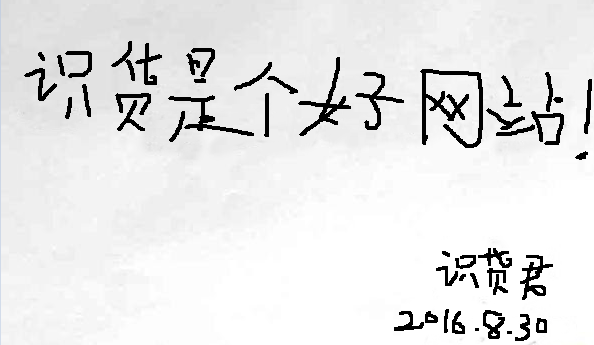 识货是个好网站!
识货君
2016.8.30